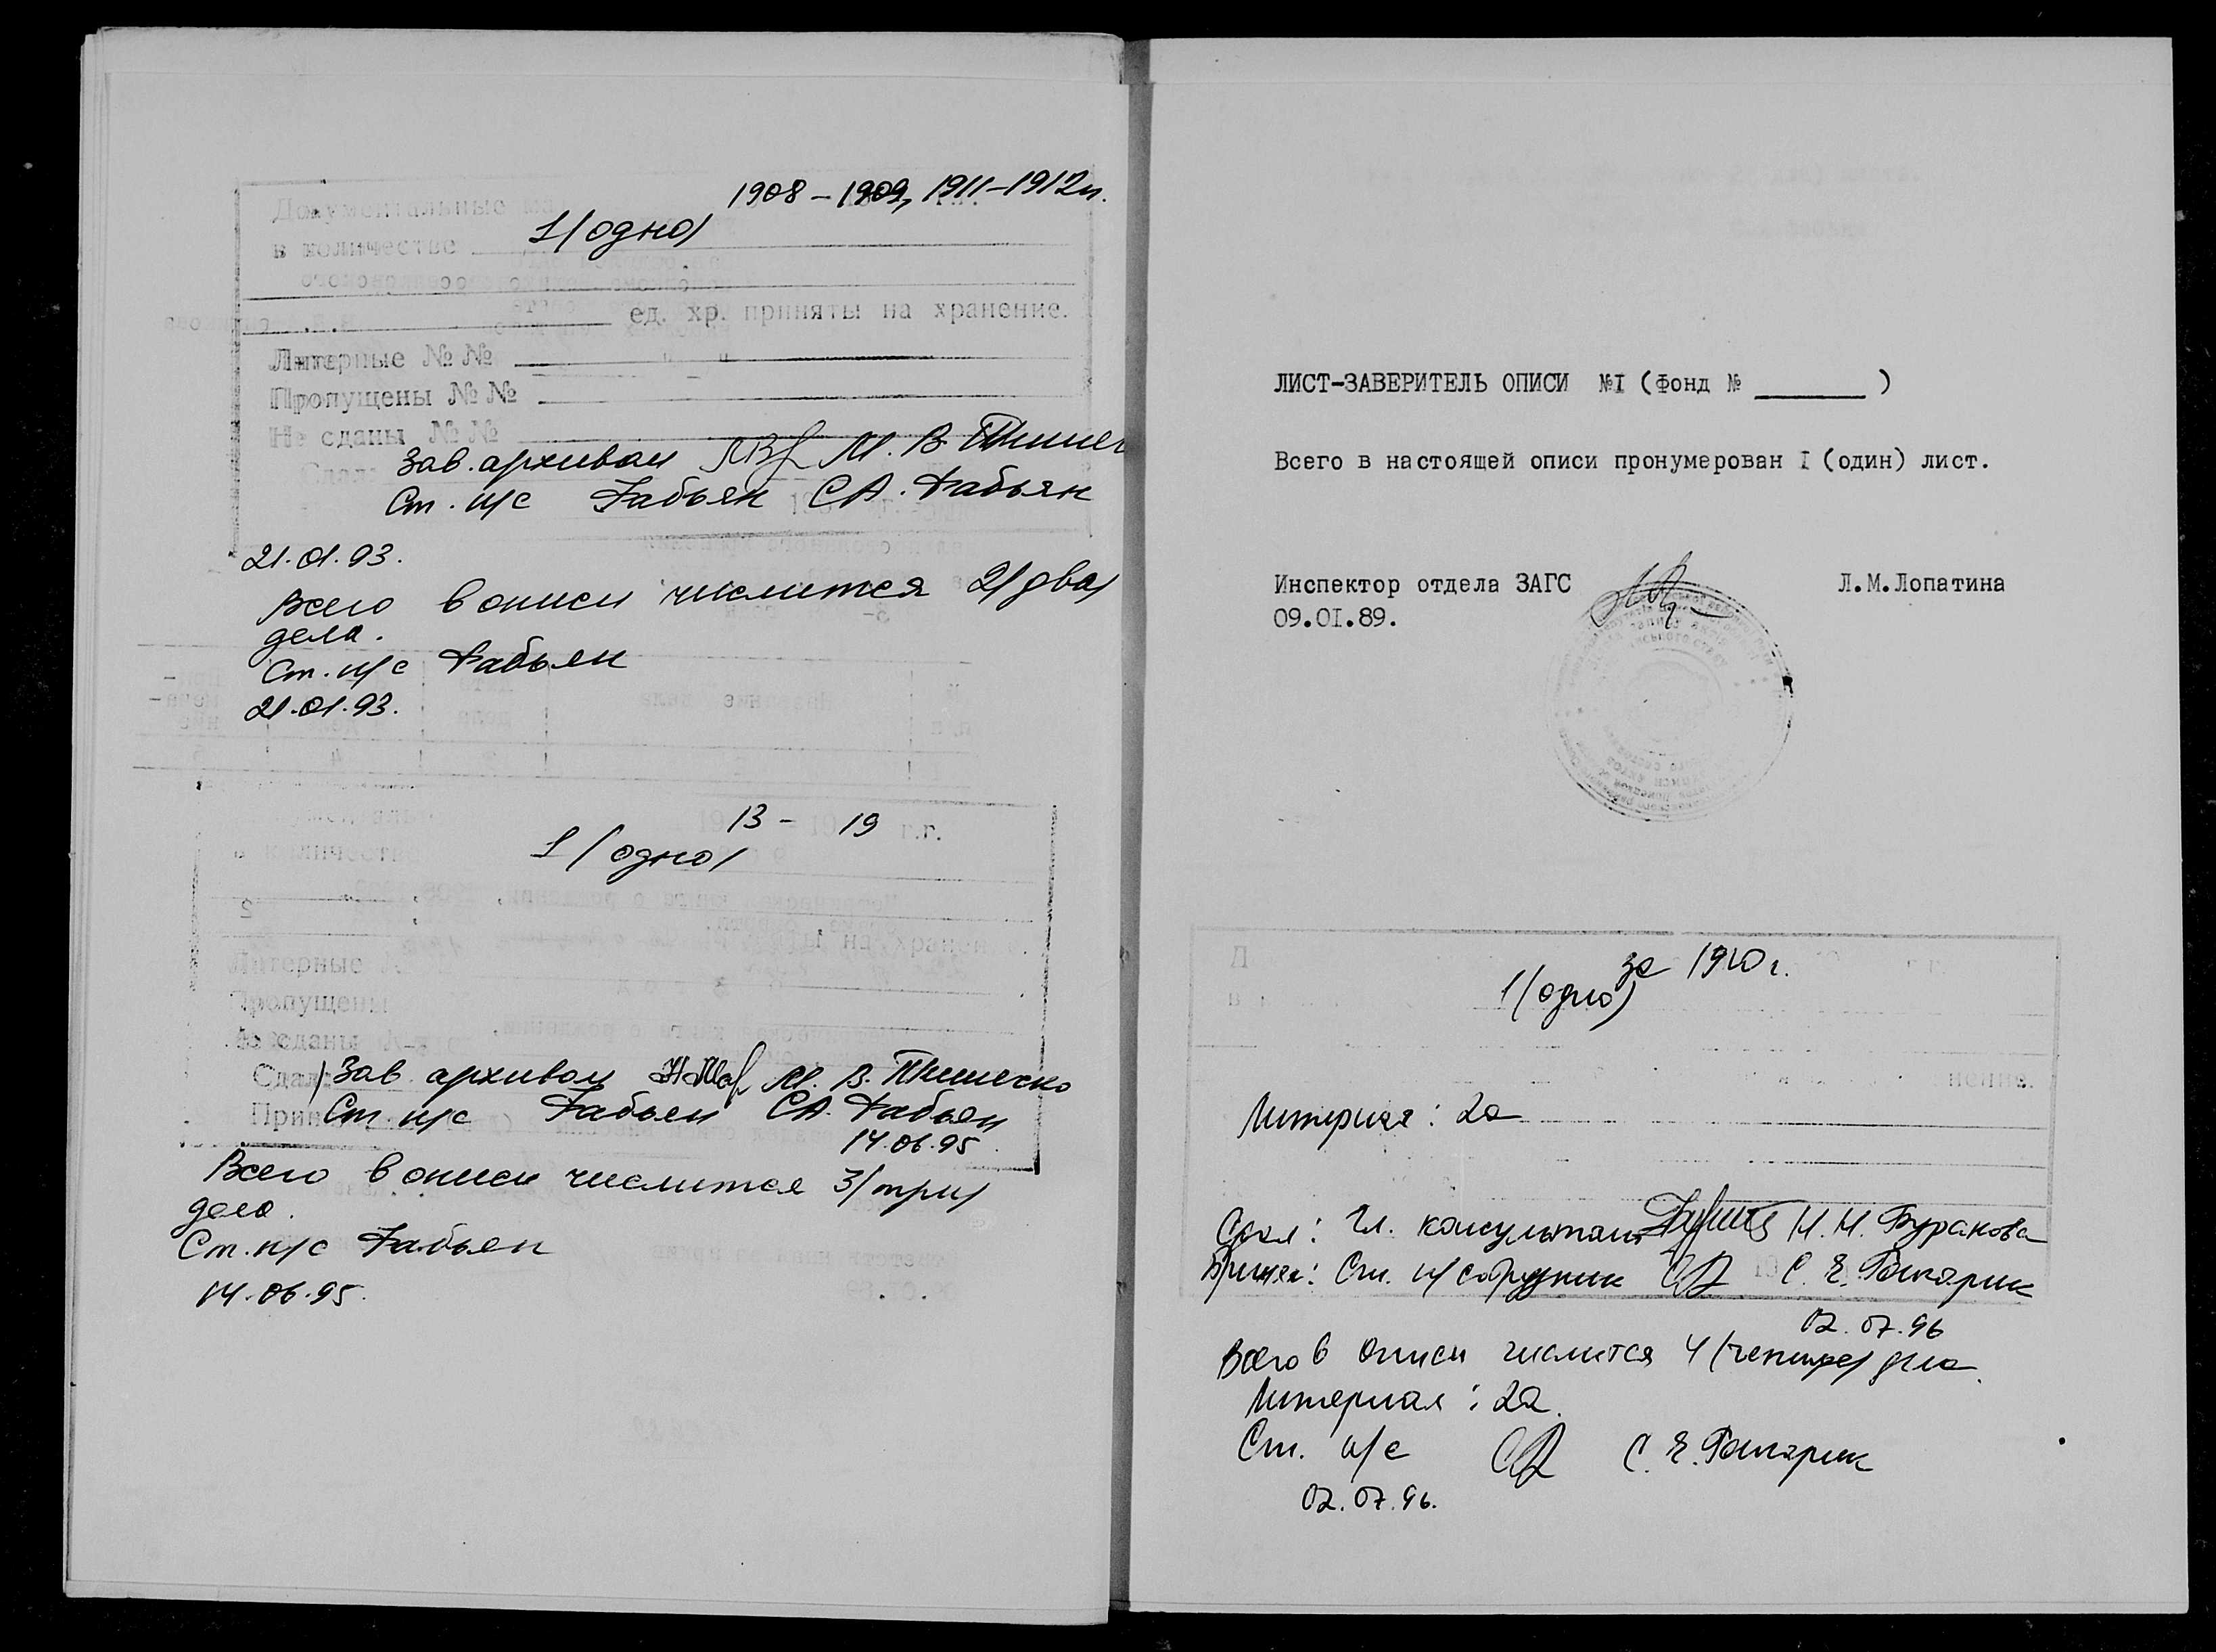 Документальные ма 1908-1909, 1911-1912гг.
в количестве 1/одно/
ед. хр. приняты на хранение.
Литерные №№
Пропущены №№
Не сданы №№
Зав. архивом М. В. 
Ст. н/с Фабьян С.А. Фабьян
21.01.93.
Всего в описи числится 2/два/
дела.
Ст. н/с Фабьян
21.01.93.
13 - 19 г.г.
1/одно/
Литерные
Пропущены
Не сданы
Сдал Зав. архивом М. В.
Принял Ст. н/с Фабьян С.А. Фабьян
14.06.95
Всего в описи числится 3/три/
дела.
Ст. н/с Фабьян
14.06.95.
ЛИСТ-ЗАВЕРИТЕЛЬ ОПИСИ №I (Фонд № ______ )
Всего в настоящей описи пронумерован I (один) лист.
Инспектор отдела ЗАГС Л.М.Лопатина
09.0I.89.
за 1910г.
1/одно/
нение.
Литерная: 2а
Сдал: Гл. консультант Н.Н. Буракова
Принял: Ст. н/сотрудник С. Е.
02.07.96
Всего в описи числится 4/четыре/ дела.
Литерная: 2а.
Ст. н/с С. Е.
02.07.96.